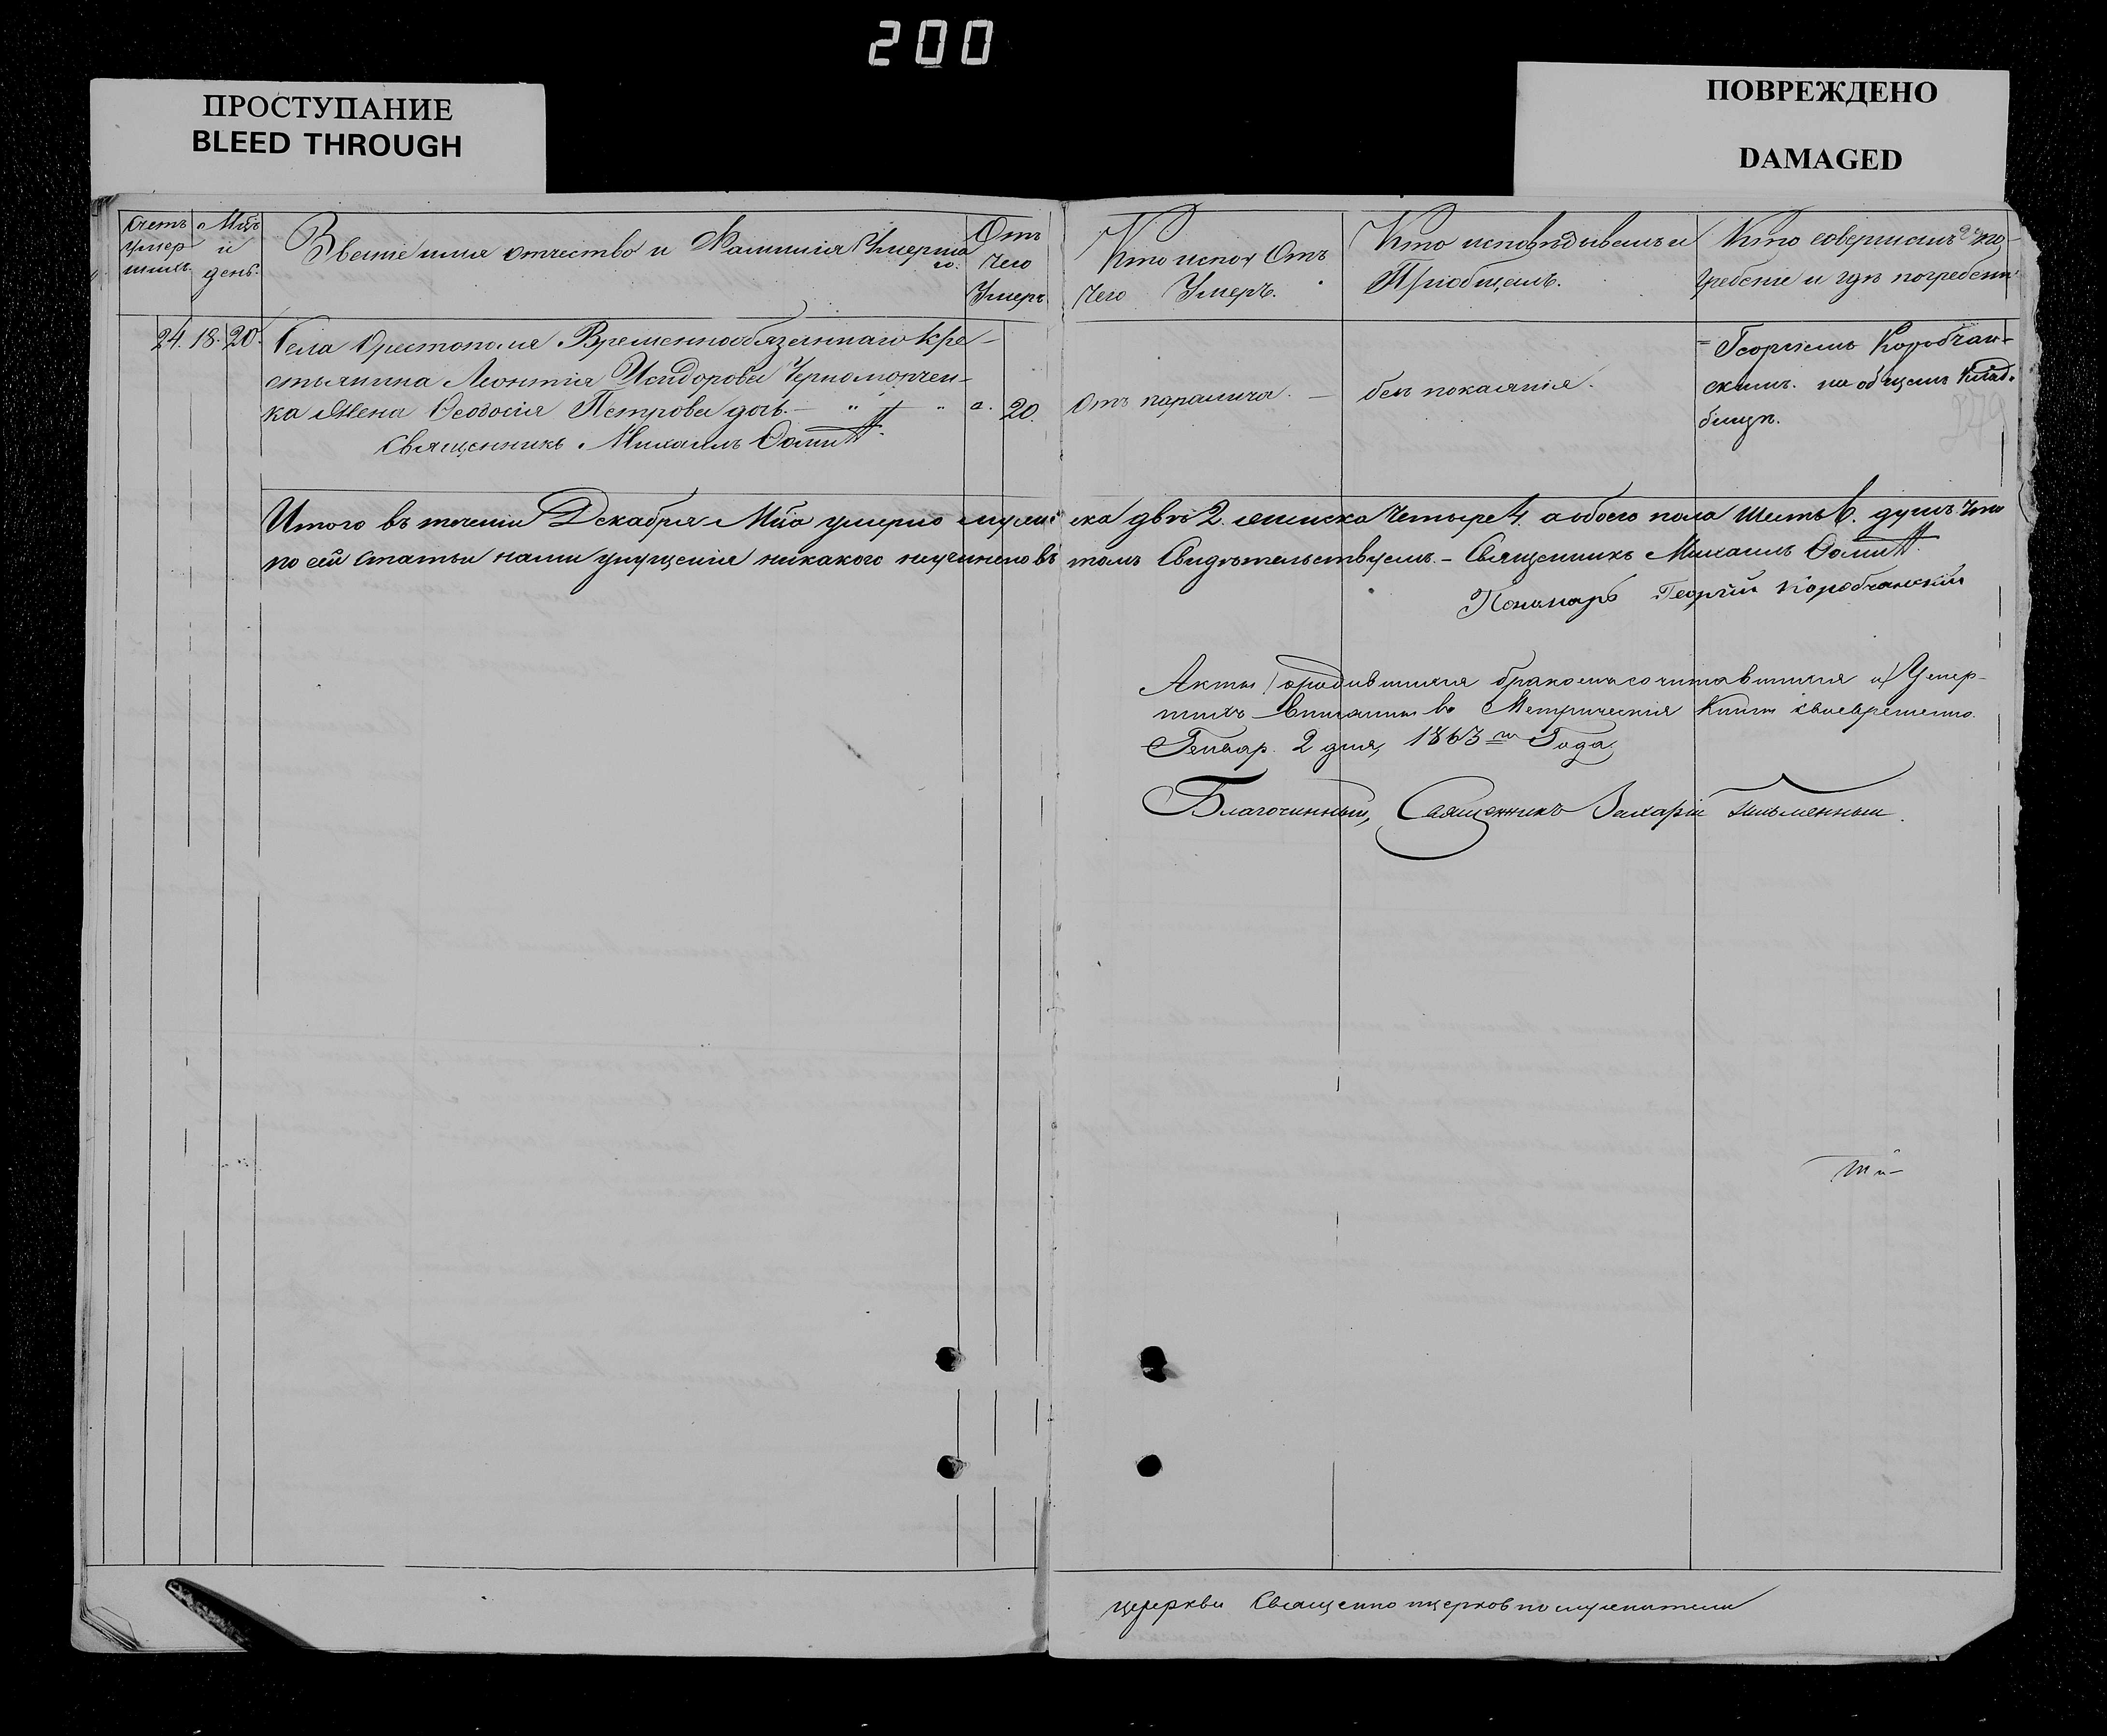 200
ПРОСТУПАНИЕ
BLEED THROUGH
ПОВРЕЖДЕНО
DAMAGED
Счетъ умершихъ
Мцъ и день
Званіе имя отчество и Фамилія Умершаго.
Отъ чего Умеръ
Отъ Чего Умеръ.
Кто исповѣдывалъ и Пріобщалъ.
Кто совершалъ погребеніе и гдѣ погребены
24. 18. 20.
Села Орестополя Временнообязаннаго Кре-
стьянина Леонтія Исидорова
ка Жена Ѳеодосія Петрова дочь. 20.
Священникъ Михаилъ
Отъ паралича. —
без покаянія.
Георгіемъ Коробчан-
скимъ. на общемъ Клад-
бищѣ.
279
Итого въ теченіи Декабря Мца умерло мужеска двѣ 2. женска Четыре 4. а обоего пола Шесть 6. душъ что
по сей статьи нами упущенія никакого неучинено въ томъ Свидѣтельствуемъ. — Священникъ Михаилъ
Пономарь Георгій Коробчанскій
Акты бракомъ сочитавшихся и Умер-
шихъ вписанны въ Метрическія Книги своевременно.
Генвар. 2 дня, 1863 го Года
Благочинный, Священникъ Захарій
церкви Священно церковнослужители